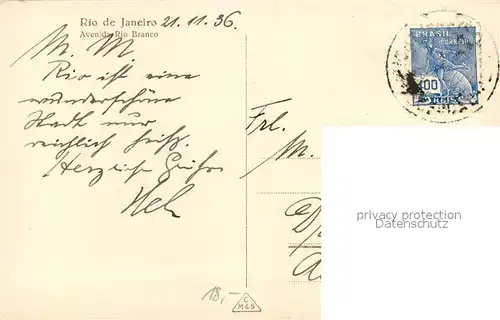 Rio de Janeiro 21.11.36.
Avenida Rio Branco
M. M.
Rio ist eine
wunderschöne
Stadt nur
reichlich heiß.
Herzliche Grüße
Hel
Frl.
M.
18,-
C
M&S
BRASIL
CORREIO
400
REIS
privacy protection